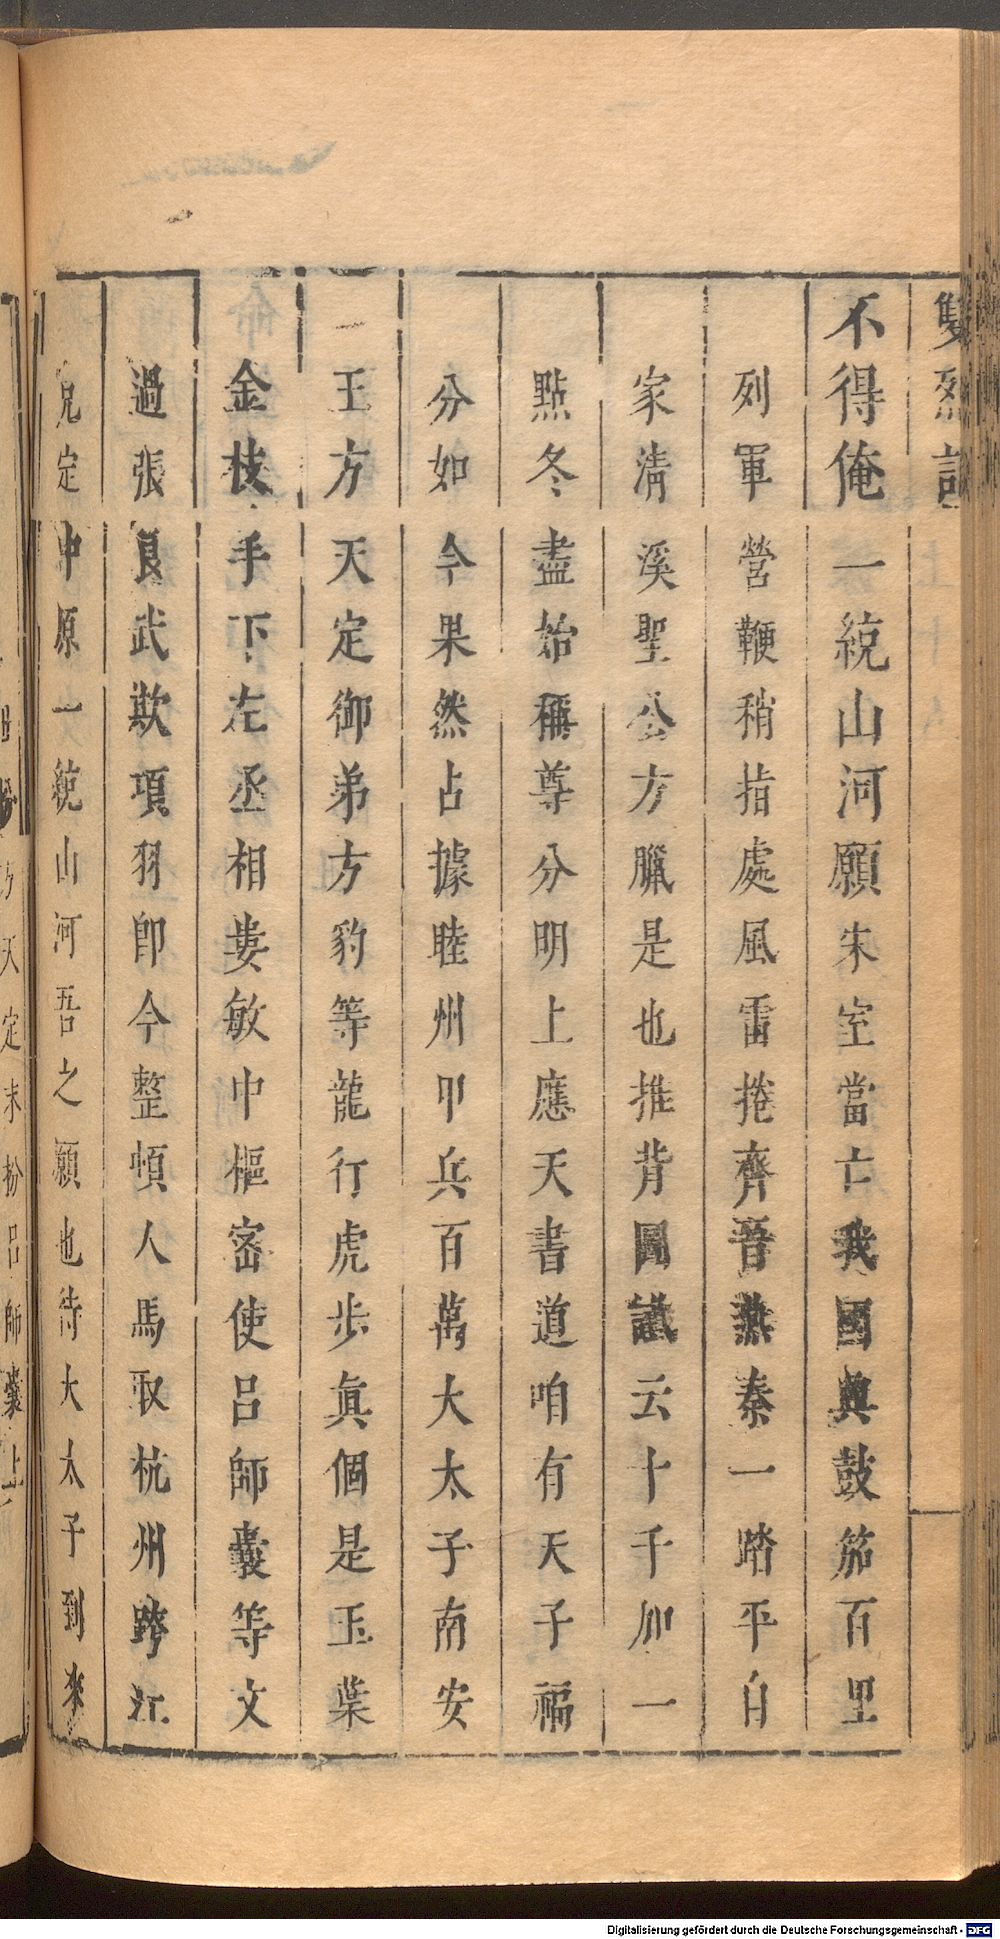 雙烈記
不得俺一統山河願朱室當亡我國興鼓笳百里
列軍營鞭稍指處風雷捲齊晉燕秦一踏平自
家清溪聖公方臘是也推背圖讖云十千加一
點冬盡始稱尊分明上應天書道咱有天子福
分如今果然占據睦州甲兵百萬大太子南安
王方天定御弟方豹等龍行虎步真個是玉葉
金枝手下左丞相婁敏中樞密使呂師囊等文
過張良武欺項羽即今整頓人馬取杭州跨江
定中原一統山河吾之願也待大太子到來
方天定末扮呂師囊上
Digitalisierung gefördert durch die Deutsche Forschungsgemeinschaft - DFG